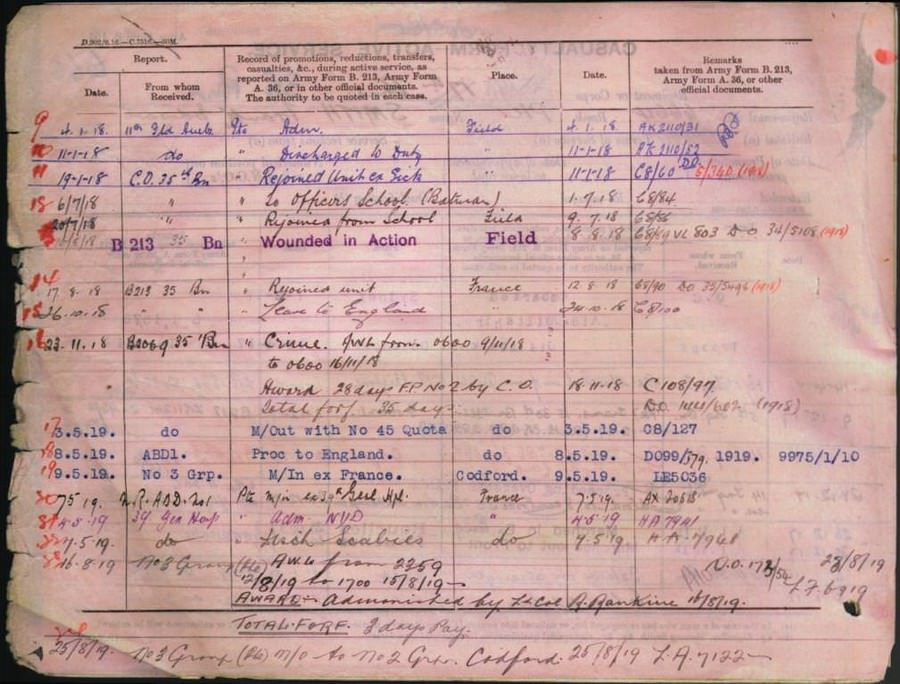 Report.
Record of promotions, reductions, transfers, casualties, &c., during active service, as reported on Army Form B. 213, Army Form A. 36, or in other official documents. The authority to be quoted in each case.
Place.
Date.
Remarks taken from Army Form B. 213, Army Form A. 36, or other official documents.
Date.
From whom Received.
9 4.1.18. 11th Fld Pte Adm. Field 4.1.18. AK2110/31
10 11-1-18 do " Discharged to Duty 11-1-18 AK2110/52
11 19-1-18 C.O. 35th Bn " Rejoined Unit ex Sick 11-1-18 C8/60 DO 5/340 (1918)
6/7/18 " " To Officers School (Batman) 1.7.18 C8/84
20/7/18 " " Rejoined from School Field 9.7.18 C8/86
B 213 35 Bn " Wounded in Action Field 8.8.18 C8/89 VL 803 DO 34/5108 (1918)
14 17.8.18 B213 35 Bn " Rejoined unit France 12.8.18 C8/90 DO 35/5496 (1918)
15 26.10.18 " " " Leave to England 24.10.18 C8/100
16 23.11.18 B2069 35 Bn " Crime. AWL from 0600 9/11/18
to 0600 16/11/18
Award 28 days FP No 2 by C.O. 18.11.18 C108/97
Total forf. 35 days DO (1918)
17 3.5.19. do M/Out with No 45 Quota do 3.5.19. C8/127
18 8.5.19. ABD1. Proc to England. do 8.5.19. DO99/579. 1919. 9975/1/10
19 9.5.19. No 3 Grp. M/In ex France. Codford. 9.5.19. LE5036
20 7.5.19. Pte m/in ex 39th Genl Hpl. France 7.5.19. AX 20518
4.5.19 39 Gen Hosp " Adm. NYD " 4.5.19 HA 7941
7.5.19. do " Disch Scabies do 7.5.19. H.A.
16.8.19 No 3 Group (Pte) AWL from 2359
12/8/19 to 1700 15/8/19
AWARD - Admonished by Lt Col A. Rankine 16/8/19.
TOTAL FORF. 3 days Pay.
25/8/19. No 3 Group (Pte) m/o to No 2 Grp. Codford. 25/8/19 L.A. 7122